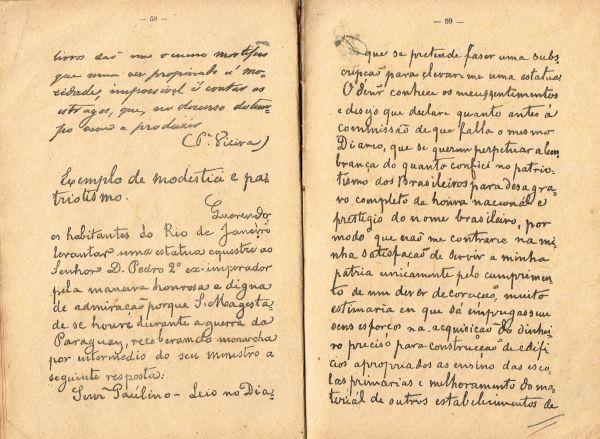 — 58 —
livros são um veneno mortifero
que uma vez propinado á mo-
cidade, impossivel é contar os
estragos, que, no decurso do tem-
po vem a produzir
(Pe. Vieira)
Exemplo de modestia e pa-
triotismo.
Querendo
os habitantes do Rio de Janeiro
levantar uma estatua equestre ao
Senhor D. Pedro 2º ex-imperador
pela maneira honrosa e digna
de admiração porque S. Magesta-
de se houve durante a guerra do
Paraguay, receberam do monarcha
por intermedio do seu ministro a
seguinte resposta:
Snr. Paulino — Leio no Dia-
— 59 —
que se pretende faser uma subs
cripção para elevar-me uma estatua
O Snr conhece os meus sentimentos
e desejo que declare quanto antes á
commissão de que falla o mesmo
Diario, que se querem perpetuar a lem
brança do quanto confiei no patrio-
tismo dos Brasileiros para desagra-
vo completo da honra nacional e
prestigio do nome brasileiro, por
modo que não me contrarie na mi
nha satisfação de servir a minha
patria unicamente pelo cumprimen-
to de um dever de coração, muito
estimaria eu que só empregassem
seus esforços na acquisição do dinhei
ro preciso para construcção de edifi
cios apropriados ao ensino das esco
las primarias e melhoramento do ma-
terial de outros estabelecimentos de